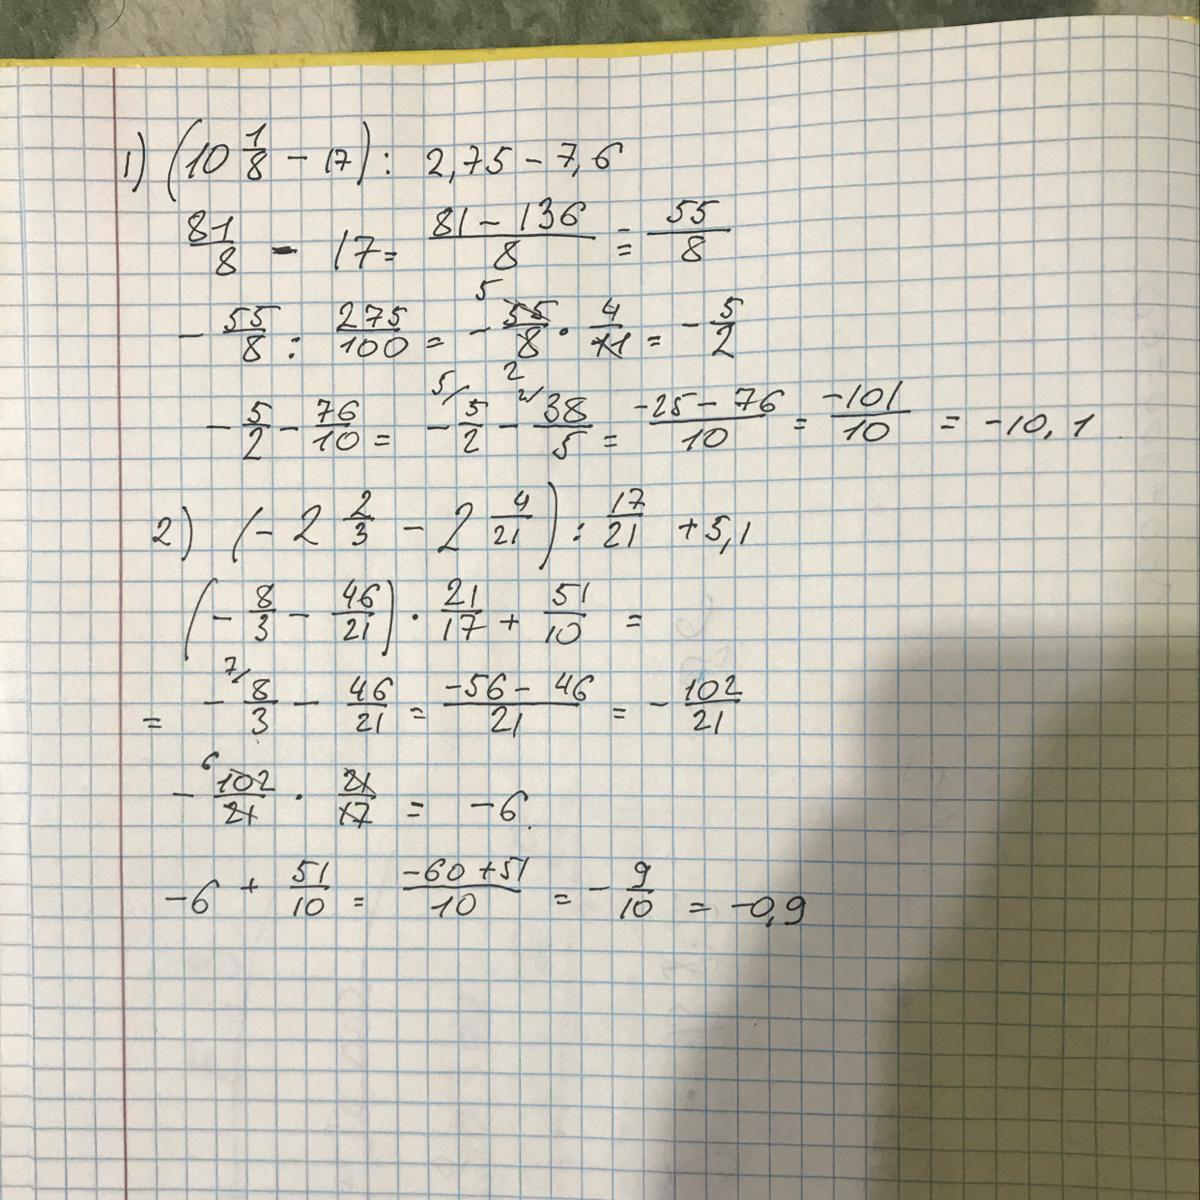 1) (10 1/8 - 17) : 2,75 - 7,6
81/8 - 17 = (81 - 136)/8 = - 55/8
- 55/8 : 275/100 = - 55/8 · 4/11 = - 5/2
- 5/2 - 76/10 = - 5/2 - 38/5 = (-25 - 76)/10 = -101/10 = -10,1
2) (- 2 2/3 - 2 4/21) : 17/21 + 5,1
(- 8/3 - 46/21) · 21/17 + 51/10 =
= - 8/3 - 46/21 = (-56 - 46)/21 = - 102/21
- 102/21 · 21/17 = -6.
-6 + 51/10 = (-60 + 51)/10 = - 9/10 = -0,9